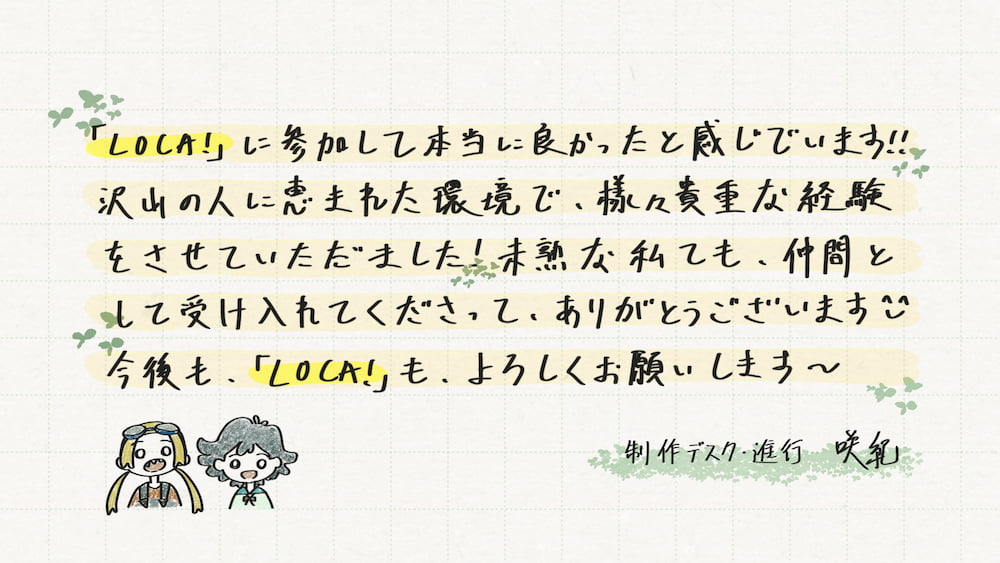 「LOCA!」に参加して本当に良かったと感じています!!
沢山の人に恵まれた環境で、様々貴重な経験
をさせていただました!未熟な私ても、仲間と
して受け入れてくださって、ありがとうございます^^
今後も、「LOCA!」も、よろしくお願いします〜
制作デスク・進行 咲紀